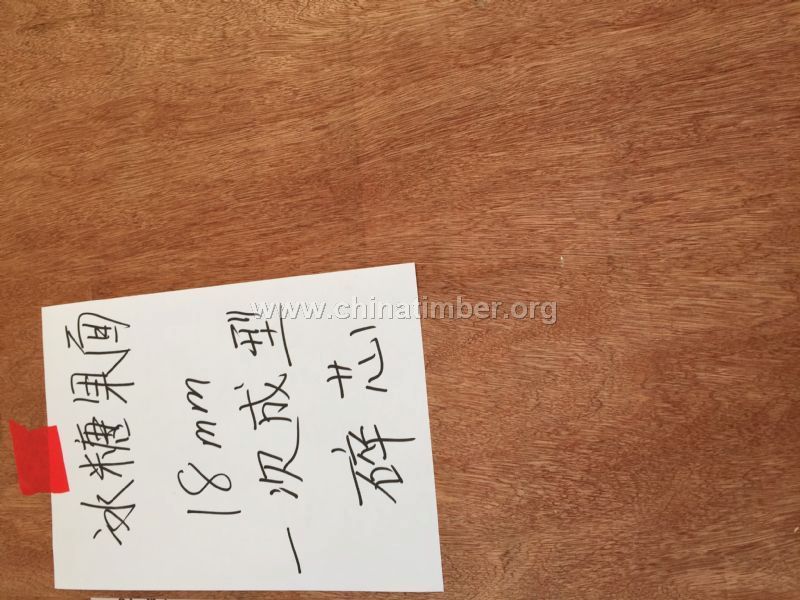 冰糖果面
18mm
一次成型
碎芯
www.chinatimber.org